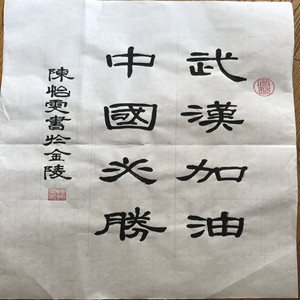 武漢加油
中國必勝
陳怡雯書於金陵